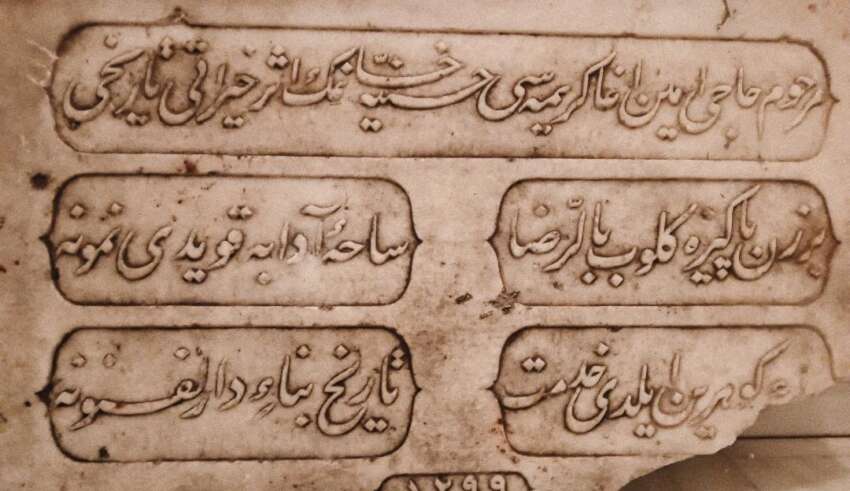 مرحوم حاجی امین اغا کریمه سی حسینیه خانمك اثر خیراتی تاریخی
بر زن پاکیزه گلوب بالرّضا
ساحهٔ آدابه قویدی نمونه
گوهرین ایلدی خدمت
تاریخ بناء دار
١٢٩٩